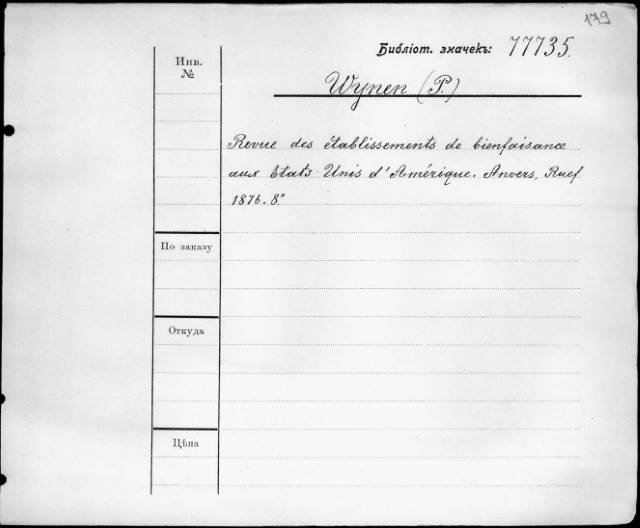 179
Библіот. значекъ: 77735.
Инв.
№
Wynen (P.)
Revue des établissements de bienfaisance
aux Etats-Unis d'Amérique. Anvers, Ruef
1876. 8°
По заказу
Откуда
Цѣна